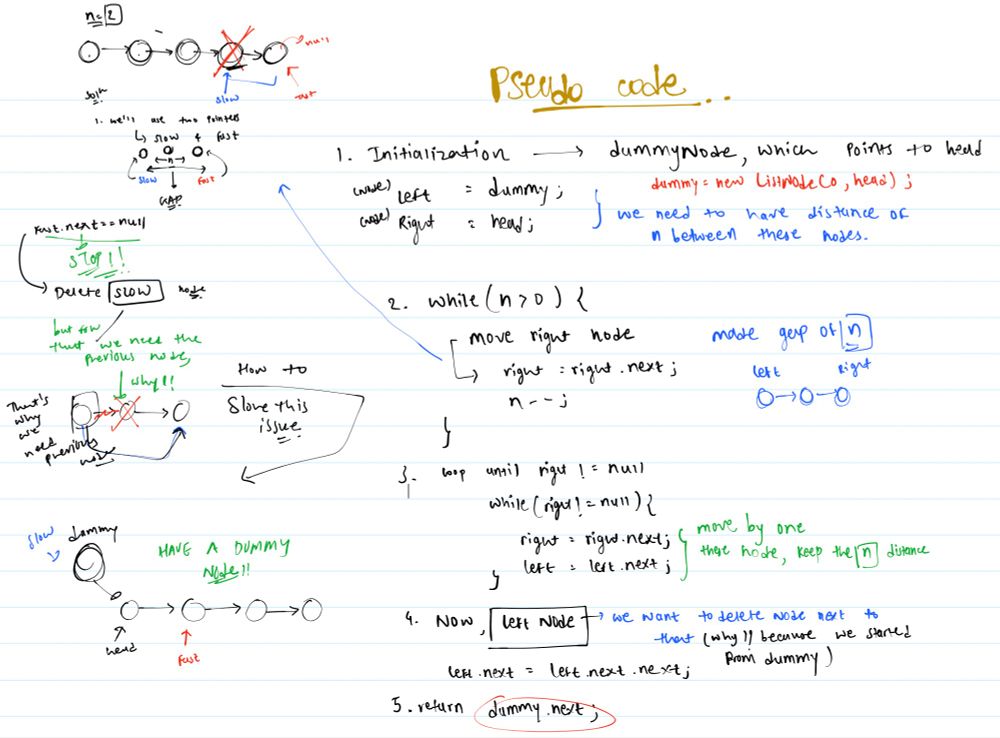 n=2
null
slow
fast
Soln
1. we'll use two pointers
↳ slow & fast
n
slow
fast
GAP
fast.next==null
STOP!!
Delete slow node
but for
that we need the
previous node,
why!!
That's
why
we
need
previous
node
How to
Slove this
issue
slow
dummy
HAVE A DUMMY
NODE!!
head
fast
Pseudo code...
1. Initialization → dummyNode, which points to head
(node) left = dummy;
(node) Right = head;
dummy = new ListNode(0, head);
we need to have distance of
n between these nodes.
2. while(n>0) {
move right node
right = right.next;
n--;
}
made gap of n
left
right
3. loop until right != null
while(right != null) {
right = right.next;
left = left.next;
}
move by one
these node, keep the n distance
4. Now, left Node → we want to delete node next to
that (why!! because we started
from dummy)
left.next = left.next.next;
5. return dummy.next;